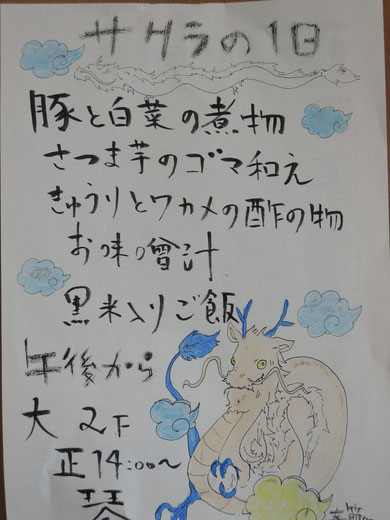 サクラの1日
豚と白菜の煮物
さつま芋のゴマ和え
きゅうりとワカメの酢の物
お味噌汁
黒米入りご飯
午後から
大 2下
正14:00〜